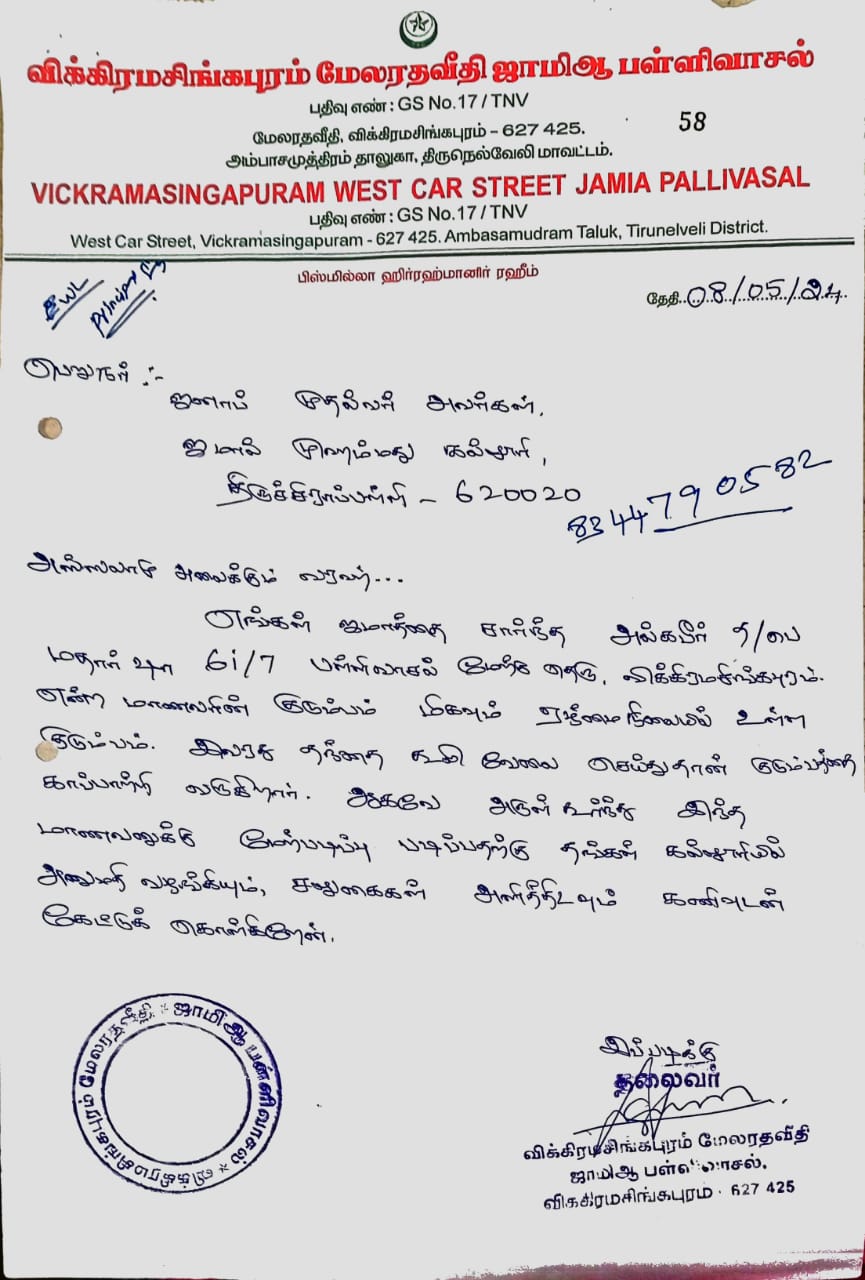 விக்கிரமசிங்கபுரம் மேலரதவீதி ஜாமிஆ பள்ளிவாசல்
பதிவு எண் : GS No.17 / TNV
மேலரதவீதி, விக்கிரமசிங்கபுரம் - 627 425.
58
அம்பாசமுத்திரம் தாலுகா, திருநெல்வேலி மாவட்டம்.
VICKRAMASINGAPURAM WEST CAR STREET JAMIA PALLIVASAL
பதிவு எண் : GS No.17 / TNV
West Car Street, Vickramasingapuram - 627 425. Ambasamudram Taluk, Tirunelveli District.
பிஸ்மில்லா ஹிர்ரஹ்மானிர் ரஹீம்
தேதி 08/05/24
பெறுநர் :-
ஜனாப் முதல்வர் அவர்கள்,
ஜமால் முஹம்மது கல்லூரி,
திருச்சிராப்பள்ளி - 620020
8344790582
அஸ்ஸலாமு அலைக்கும் வரஹ்...
எங்கள் ஜமாத்தை சார்ந்த அல்கபீர் த/பை
மதார் ஷா 6i/7 பள்ளிவாசல் மேற்கு தெரு, விக்கிரமசிங்கபுரம்.
என்ற மாணவரின் குடும்பம் மிகவும் ஏழ்மைநிலையில் உள்ள
குடும்பம். இவரது தந்தை கூலி வேலை செய்துதான் குடும்பத்தை
காப்பாற்றி வருகிறார். ஆகவே அருள் கூர்ந்து இந்த
மாணவனுக்கு மேற்படிப்பு படிப்பதற்கு தங்கள் கல்லூரியில்
அனுமதி வழங்கியும், சலுகைகள் அளித்திடவும் கனிவுடன்
கேட்டுக் கொள்கிறேன்.
இப்படிக்கு
தலைவர்
விக்கிரமசிங்கபுரம் மேலரதவீதி
ஜாமிஆ பள்ளிவாசல்,
விக்கிரமசிங்கபுரம் - 627 425
விக்கிரமசிங்கபுரம் மேலரதவீதி ஜாமிஆ பள்ளிவாசல்